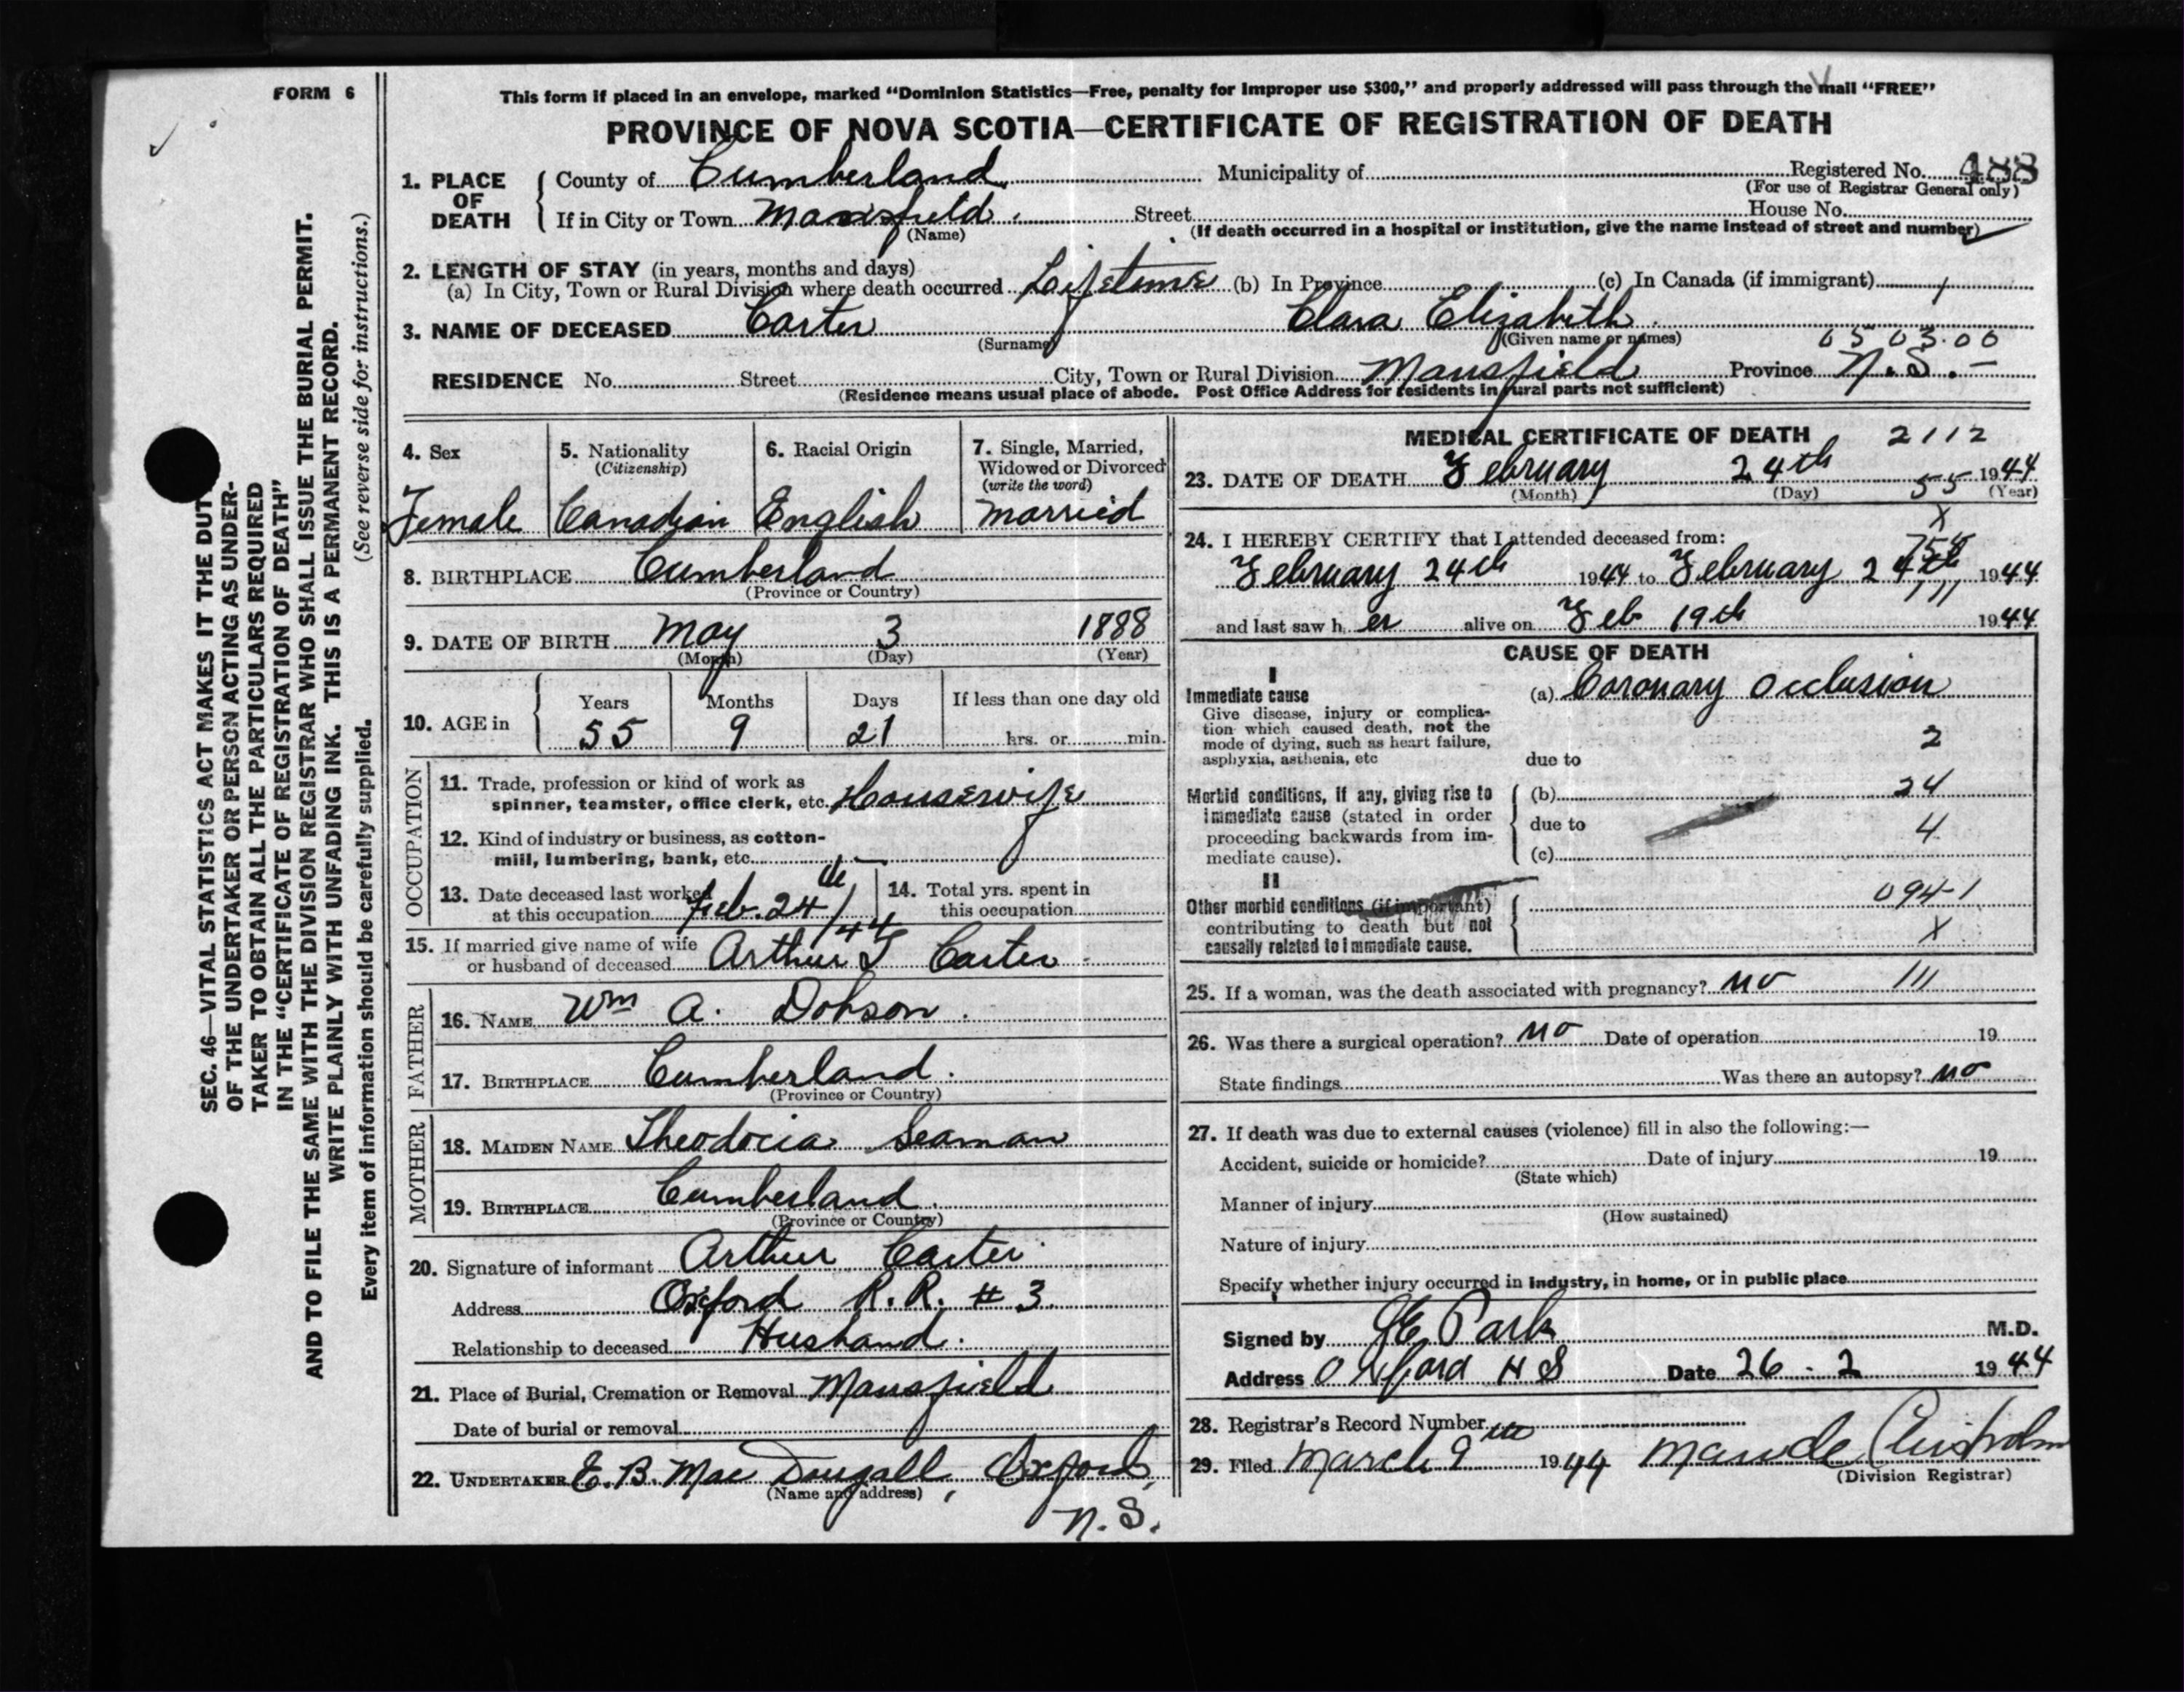 FORM 6
This form if placed in an envelope, marked "Dominion Statistics—Free, penalty for improper use $300," and properly addressed will pass through the mail "FREE"
PROVINCE OF NOVA SCOTIA—CERTIFICATE OF REGISTRATION OF DEATH
1. PLACE OF DEATH
County of Cumberland Municipality of Registered No. 488
(For use of Registrar General only)
If in City or Town Mansfield. Street House No.
(Name) (If death occurred in a hospital or institution, give the name instead of street and number)
2. LENGTH OF STAY (in years, months and days)
(a) In City, Town or Rural Division where death occurred Lifetime (b) In Province (c) In Canada (if immigrant)
3. NAME OF DECEASED Carter Clara Elizabeth.
(Surname) (Given name or names) 0503.00
RESIDENCE No. Street City, Town or Rural Division Mansfield Province N.S. -
(Residence means usual place of abode. Post Office Address for residents in rural parts not sufficient)
4. Sex
Female
5. Nationality
(Citizenship)
Canadian
6. Racial Origin
English
7. Single, Married, Widowed or Divorced
(write the word)
Married
8. BIRTHPLACE Cumberland
(Province or Country)
9. DATE OF BIRTH May 3 1888
(Month) (Day) (Year)
10. AGE in
Years Months Days If less than one day old
55 9 21 hrs. or min.
OCCUPATION
11. Trade, profession or kind of work as
spinner, teamster, office clerk, etc. Housewife
12. Kind of industry or business, as cotton-
mill, lumbering, bank, etc. —
13. Date deceased last worked
at this occupation Feb. 24th/44
14. Total yrs. spent in
this occupation
15. If married give name of wife
or husband of deceased Arthur T Carter
FATHER
16. NAME Wm A. Dobson.
17. BIRTHPLACE Cumberland.
(Province or Country)
MOTHER
18. MAIDEN NAME Theodocia Seaman
19. BIRTHPLACE Cumberland.
(Province or Country)
20. Signature of informant Arthur Carter.
Address Oxford R.R. # 3.
Relationship to deceased Husband.
21. Place of Burial, Cremation or Removal Mansfield
Date of burial or removal
22. UNDERTAKER E. B. Mac Dougall, Oxford,
(Name and address)
N.S.
MEDICAL CERTIFICATE OF DEATH 2112
23. DATE OF DEATH February 24th 1944
(Month) (Day) 55 (Year)
X
24. I HEREBY CERTIFY that I attended deceased from:
February 24th 1944 to February 24th 1944
111
and last saw her alive on Feb 19th 1944
CAUSE OF DEATH
I
Immediate cause
Give disease, injury or complica-
tion which caused death, not the
mode of dying, such as heart failure,
asphyxia, asthenia, etc
(a) Coronary Occlusion
2
due to
Morbid conditions, if any, giving rise to
immediate cause (stated in order
proceeding backwards from im-
mediate cause).
(b) 24
due to 4
(c)
II
Other morbid conditions (if important)
contributing to death but not
causally related to immediate cause.
094-1
X
25. If a woman, was the death associated with pregnancy? no 111
26. Was there a surgical operation? no Date of operation 19
State findings Was there an autopsy? no
27. If death was due to external causes (violence) fill in also the following:—
Accident, suicide or homicide? Date of injury 19
(State which)
Manner of injury
(How sustained)
Nature of injury
Specify whether injury occurred in industry, in home, or in public place
Signed by Park M.D.
Address Oxford N S Date 26 - 2 1944
28. Registrar's Record Number
29. Filed March 9th 1944 Maude Chisholm
(Division Registrar)
SEC. 46—VITAL STATISTICS ACT MAKES IT THE DUTY
OF THE UNDERTAKER OR PERSON ACTING AS UNDER-
TAKER TO OBTAIN ALL THE PARTICULARS REQUIRED
IN THE "CERTIFICATE OF REGISTRATION OF DEATH"
AND TO FILE THE SAME WITH THE DIVISION REGISTRAR WHO SHALL ISSUE THE BURIAL PERMIT.
WRITE PLAINLY WITH UNFADING INK. THIS IS A PERMANENT RECORD.
Every item of information should be carefully supplied. (See reverse side for instructions.)